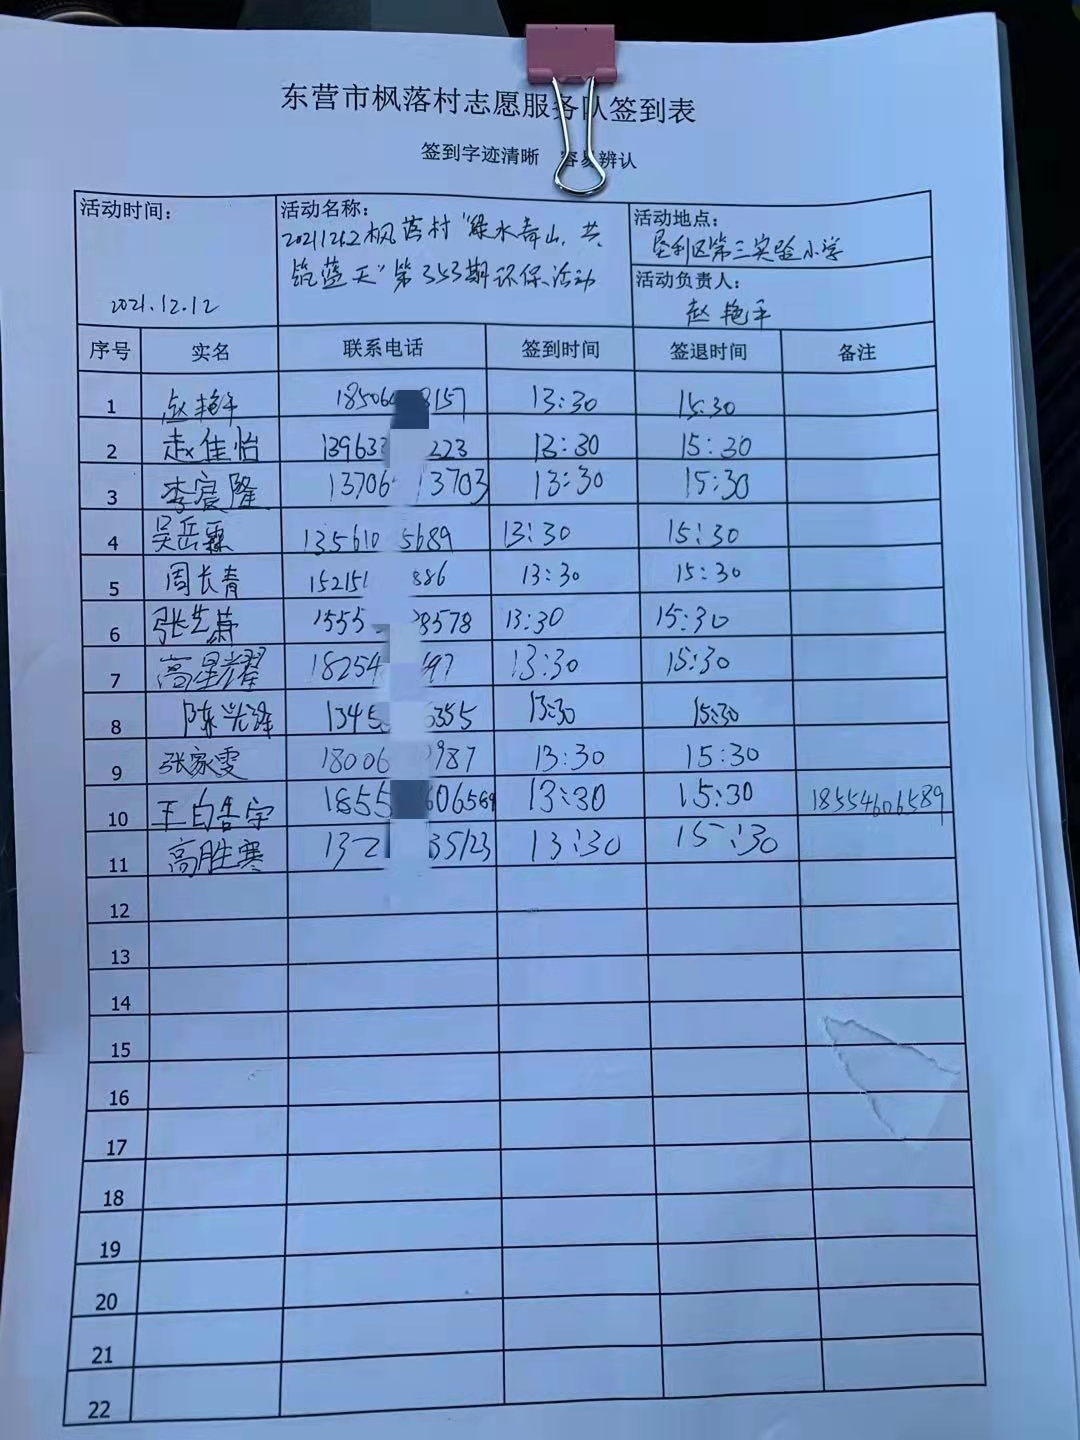 东营市枫落村志愿服务队签到表
签到字迹清晰 容易辨认
活动时间：
2021.12.12
活动名称：
20211212枫落村“绿水青山，共
筑蓝天”第353期环保活动
活动地点：
垦利区第三实验小学
活动负责人：
赵艳平
序号 实名 联系电话 签到时间 签退时间 备注
1 赵艳平 18506 8157 13:30 15:30
2 赵佳怡 13963 223 13:30 15:30
3 李宸隆 13706 13703 13:30 15:30
4 吴岳霖 135610 5689 13:30 15:30
5 周长青 15215 886 13:30 15:30
6 张艺萧 1555 8578 13:30 15:30
7 高星耀 18254 97 13:30 15:30
8 陈 1345 6355 13:30 15:30
9 张家雯 18006 987 13:30 15:30
10 王皓宇 1855 606589 13:30 15:30 18554606589
11 高胜寒 132 35123 13:30 15:30
12
13
14
15
16
17
18
19
20
21
22